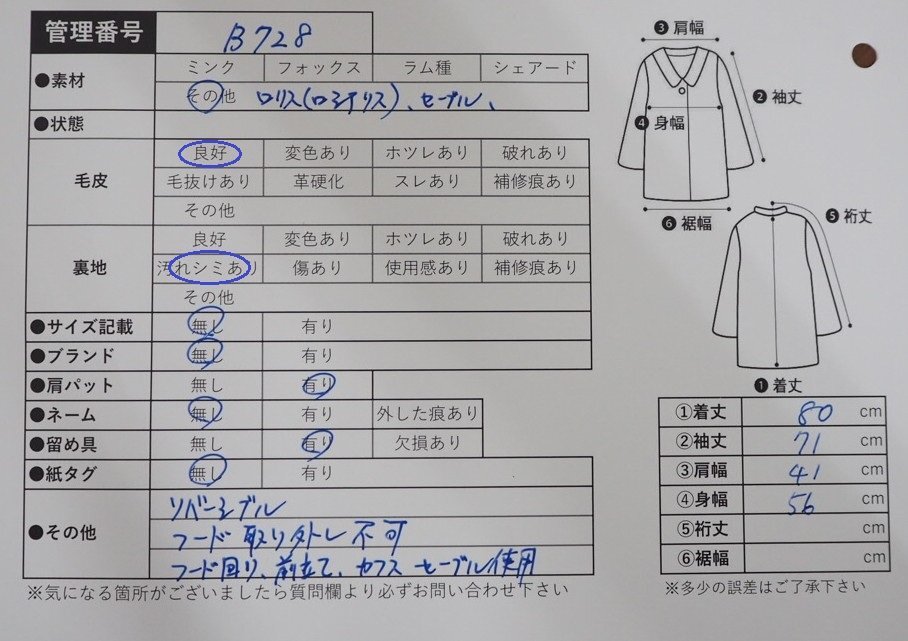 管理番号 B728
●素材 ミンク フォックス ラム種 シェアード
その他 ロリス(ロシアリス)、セーブル、
●状態
毛皮 良好 変色あり ホツレあり 破れあり
毛抜けあり 革硬化 スレあり 補修痕あり
その他
裏地 良好 変色あり ホツレあり 破れあり
汚れシミあり 傷あり 使用感あり 補修痕あり
その他
●サイズ記載 無し 有り
●ブランド 無し 有り
●肩パット 無し 有り
●ネーム 無し 有り 外した痕あり
●留め具 無し 有り 欠損あり
●紙タグ 無し 有り
●その他 リバーシブル
フード取り外し不可
フード回り、前立て、カフス セーブル使用
※気になる箇所がございましたら質問欄より必ずお問い合わせ下さい
❸肩幅
❷袖丈
❹身幅
❻裾幅
❺裄丈
❶着丈
①着丈 80 cm
②袖丈 71 cm
③肩幅 41 cm
④身幅 56 cm
⑤裄丈 cm
⑥裾幅 cm
※多少の誤差はご了承下さい